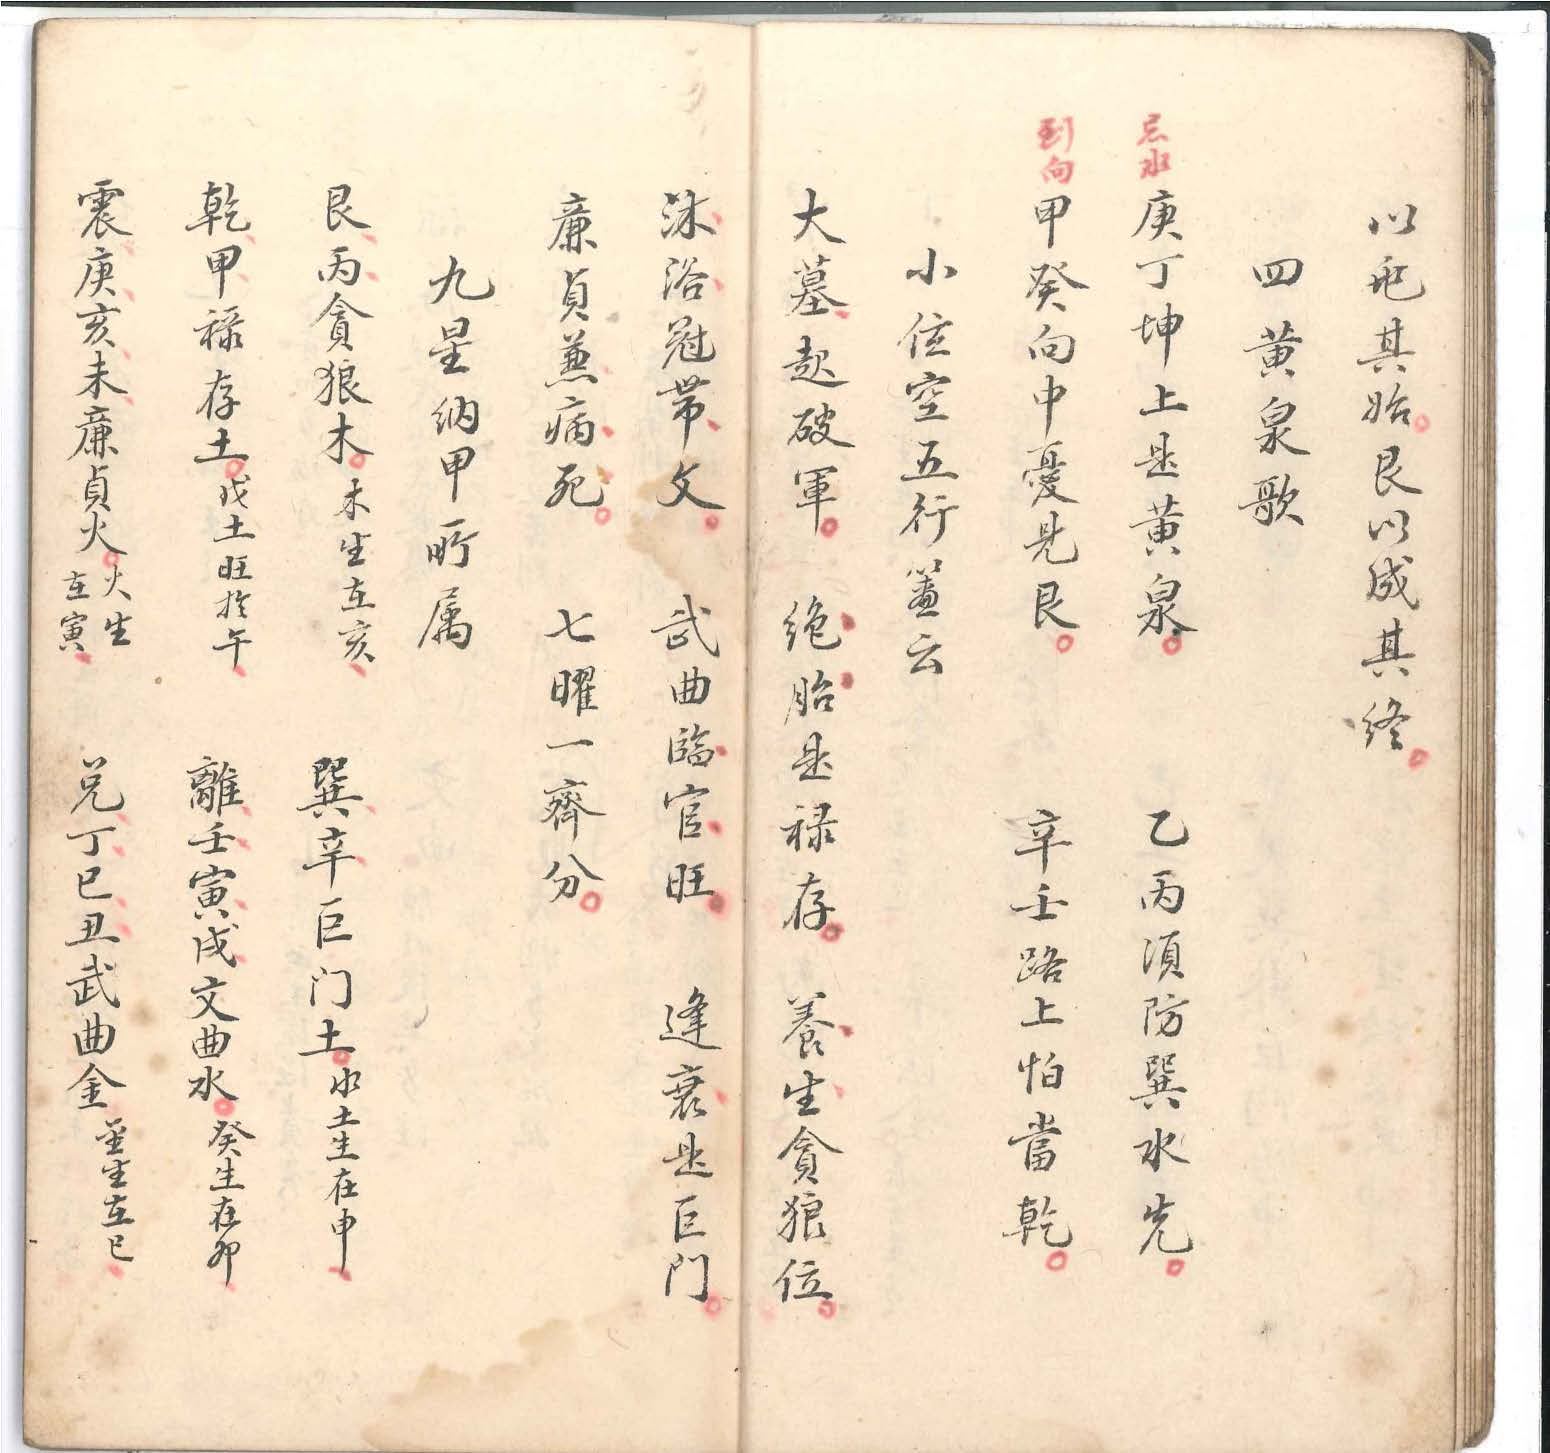 以兜其始艮以成其終
四黃泉歌
忌水
庚丁坤上是黃泉 乙丙須防巽水先
到向
甲癸向中憂見艮 辛壬路上怕當乾
小位空五行蓋云
大墓起破軍 絶胎是禄存 養生貪狼位
沐浴冠帯文 武曲臨官旺 逢衰是巨门
廉貞兼病死 七曜一齊分
九星納甲所属
艮丙貪狼木 木生在亥 巽辛巨门土 水土生在申
乾甲禄存土 戊土旺於午 離壬寅戌文曲水 癸生在卯
震庚亥未廉貞火 火生在寅 兑丁巳丑武曲金 金生在巳